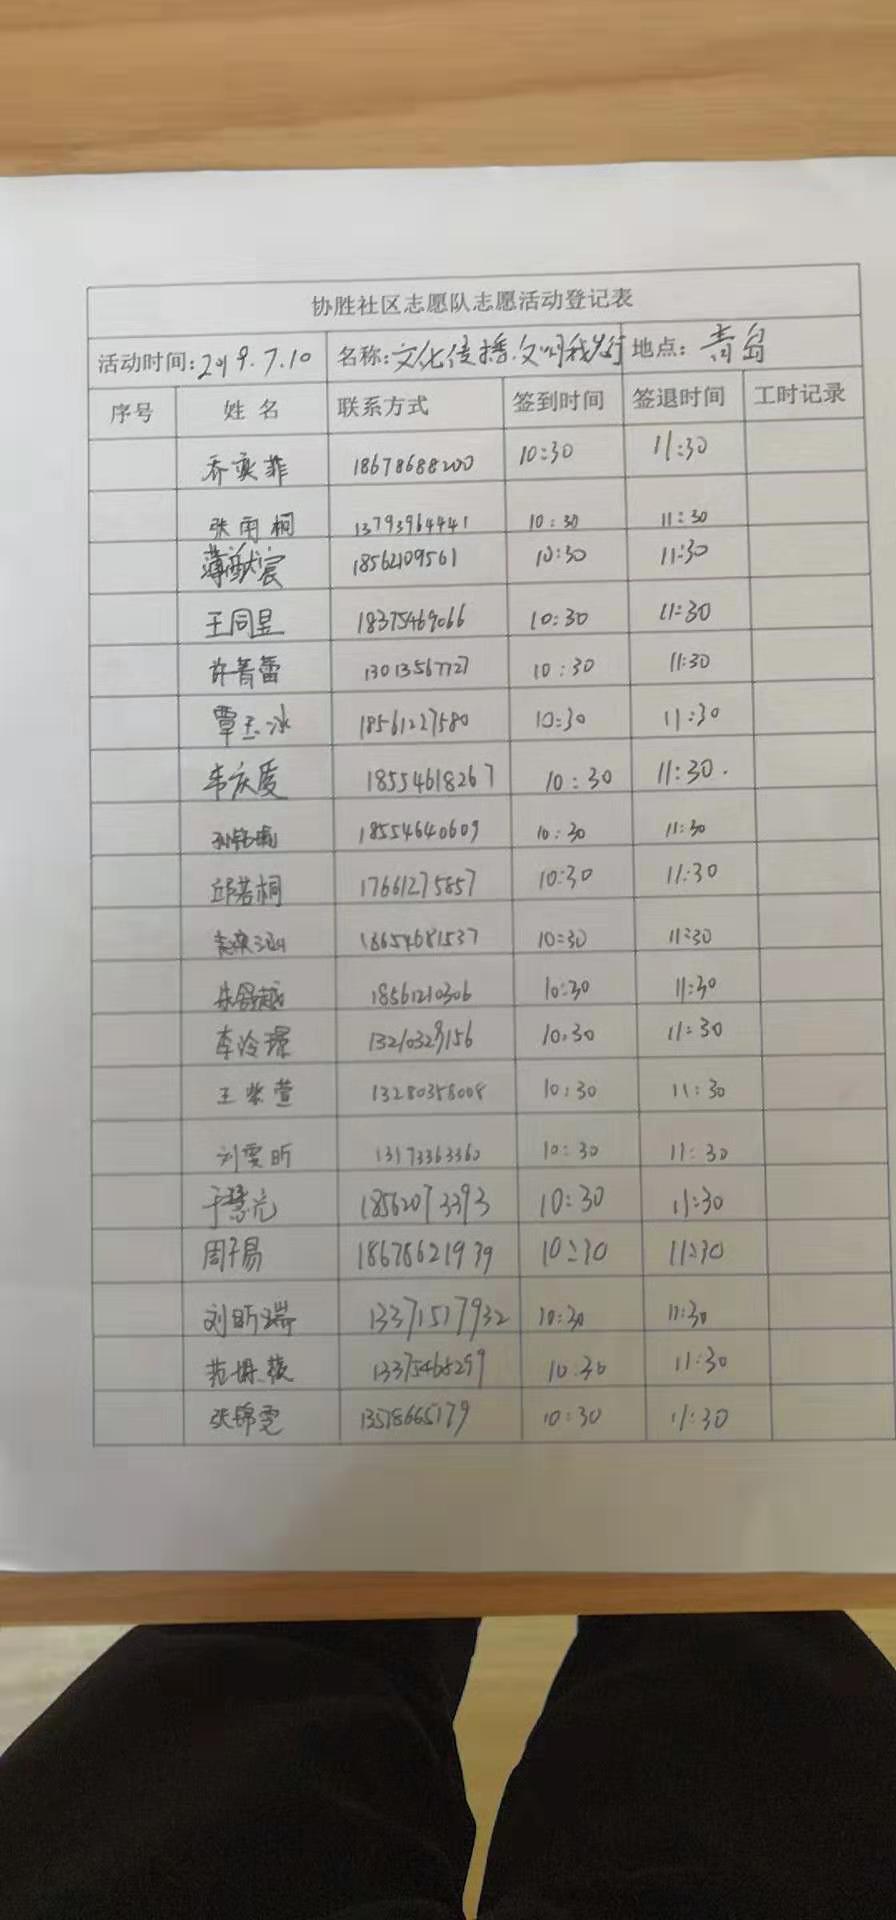 协胜社区志愿队志愿活动登记表
活动时间:2019.7.10 名称:文化传播.文明我先行 地点:青岛
序号 姓名 联系方式 签到时间 签退时间 工时记录
乔奕菲 18678688200 10:30 11:30
张雨桐 13793964441 10:30 11:30
薄猷宸 18562109561 10:30 11:30
王同昱 18375469066 10:30 11:30
许菁蕾 13013567727 10:30 11:30
覃玉冰 18561227580 10:30 11:30
韦庆廈 18554618267 10:30 11:30.
18554640609 10:30 11:30
邱若桐 17661275857 10:30 11:30
18654681537 10:30 11:30
朱舒越 18561210306 10:30 11:30
李泠璟 10:30 11:30
王紫萱 13280358008 10:30 11:30
刘雯昕 13173363360 10:30 11:30
于慧元 18562073393 10:30 11:30
周子易 18678621939 10:30 11:30
刘昕瑞 13371517932 10:30 11:30
范 13375465299 10.30 11:30
张锦雯 13578665179 10:30 11:30